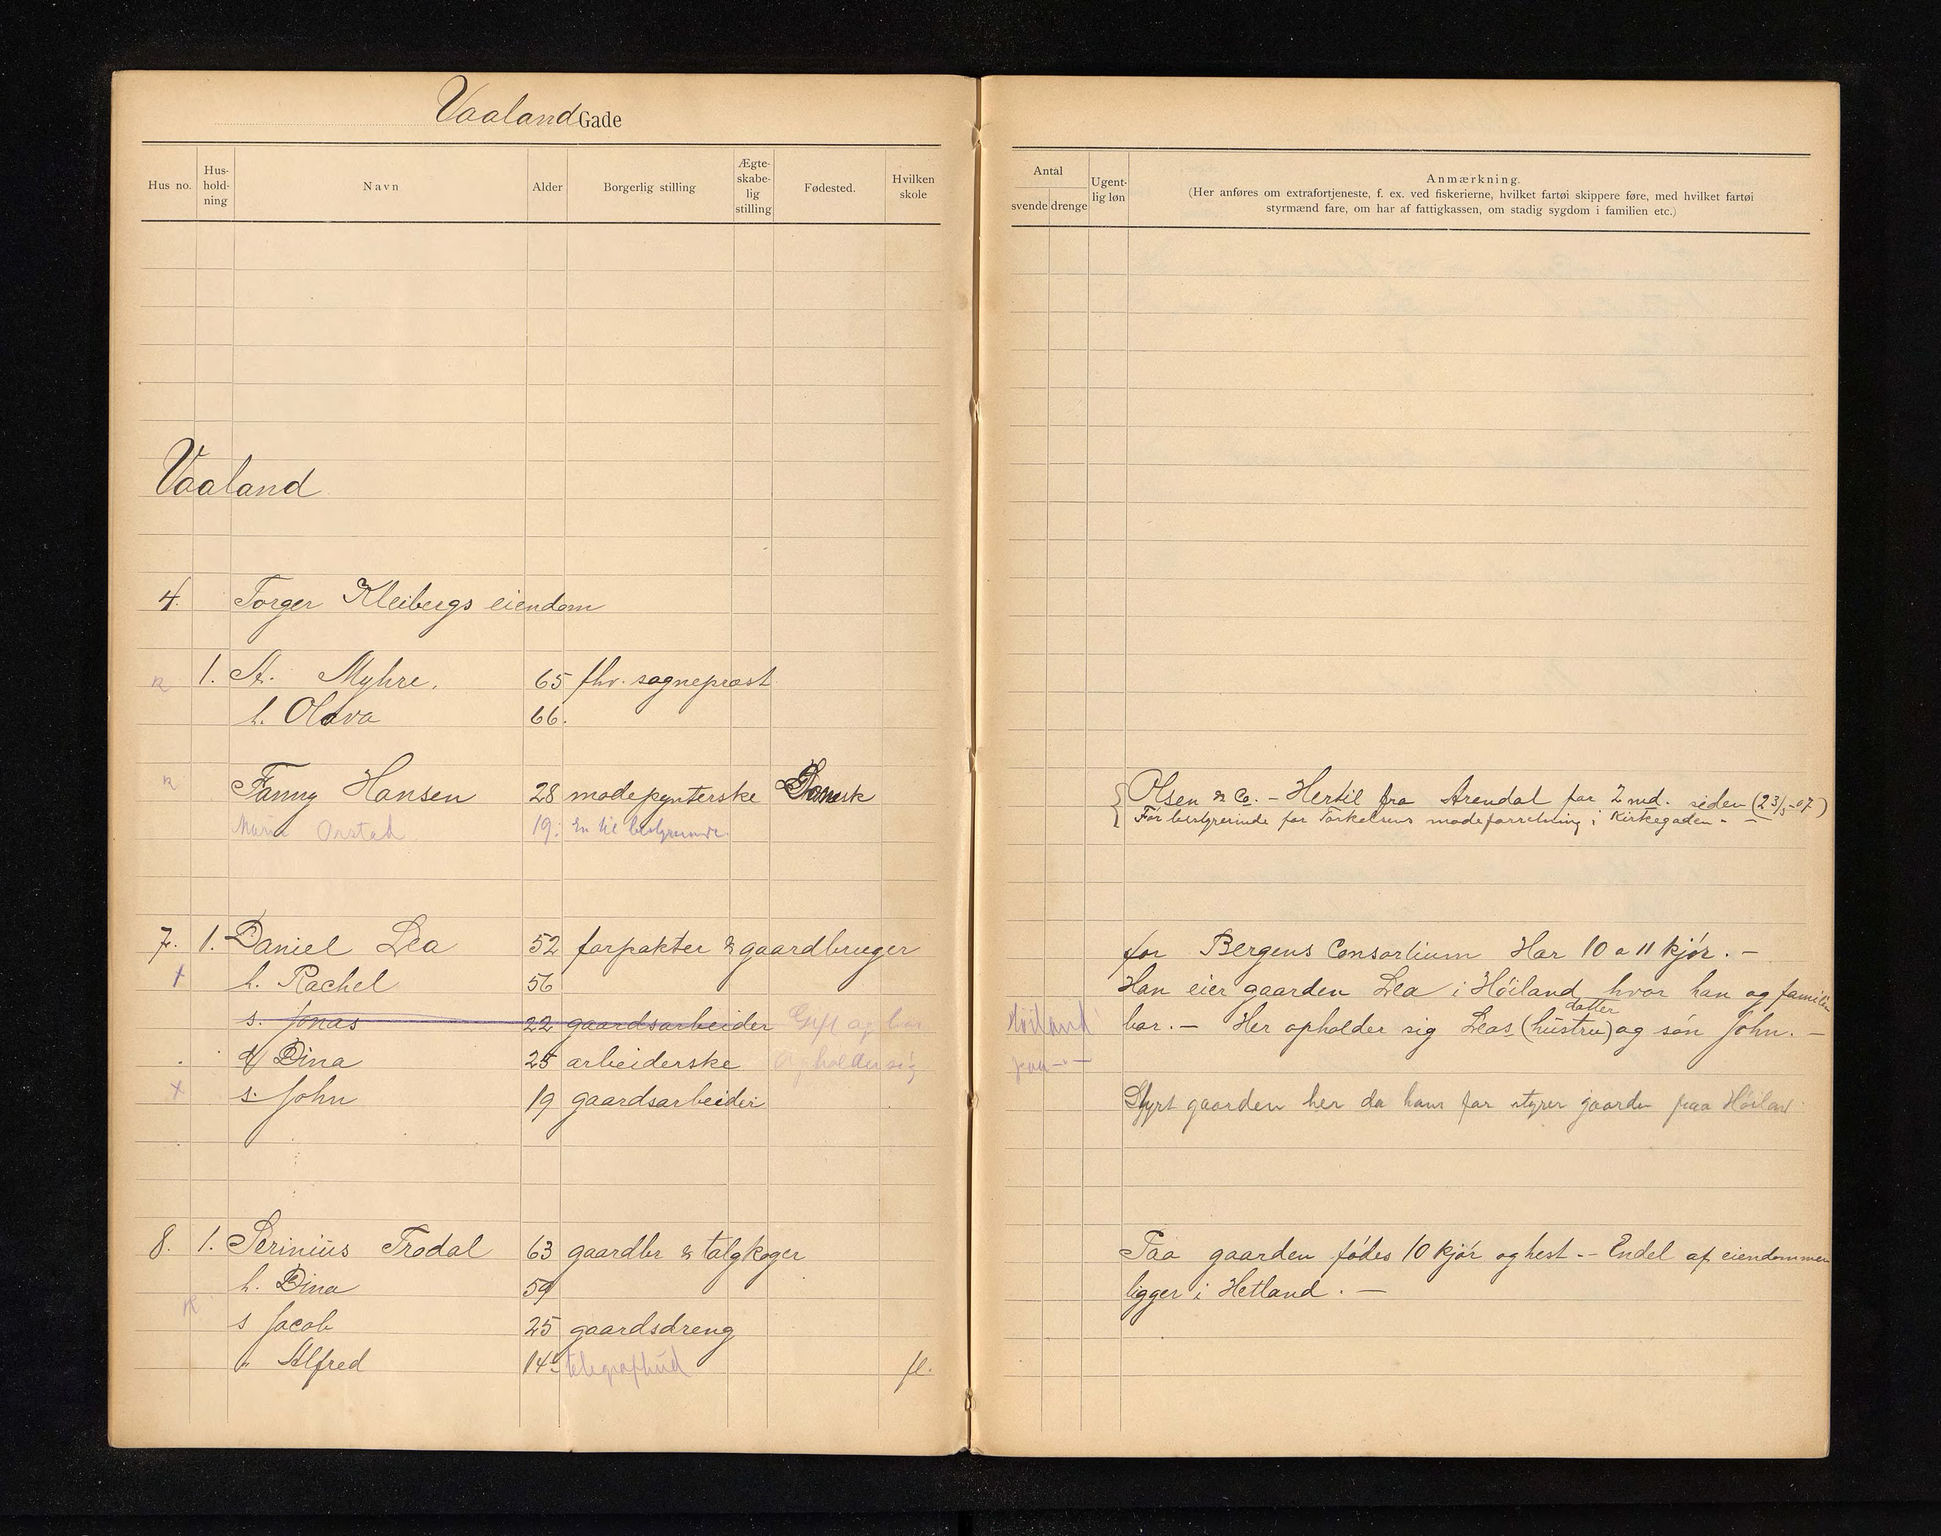 Vaaland Gade
Hus no. Hus-hold-ning Navn Alder Borgerlig stilling Ægte-skabe-lig stilling Fødested. Hvilken skole
Antal svende drenge Ugent-lig løn Anmærkning.
(Her anføres om extrafortjeneste, f. ex. ved fiskerierne, hvilket fartøi skippere føre, med hvilket fartøi
styrmænd fare, om har af fattigkassen, om stadig sygdom i familien etc.)
Vaaland
4. Torger Kleibergs eiendom
1. A. Myhre. 65 fhv. sognepræst
h. Olava 66.
Fanny Hansen 28 modepynterske Dansk Olsen & Co. - Hertil fra Arendal for 2 md. siden (23/5-07)
Maria Orstad 19. En til bestyrerinde. Før bestyrerinde for Torkelsens modeforretning i Kirkegaden. -
7. 1. Daniel Lea 52 forpakter & gaardbruger for Bergens Consortium Har 10 a 11 kjór. -
+ h. Rachel 56 Han eier gaarden Lea i Hóiland hvor han og familien
s. Jonas 22 gaardsarbeider Gift og bor Hóiland bor. - Her opholder sig Leas (hustru) datter og són John. -
d Dina 25 arbeiderske Opholder sig paa - " -
+ s. John 19 gaardsarbeider Styrt gaarden her da hans far styrer gaarden paa Hóiland
8. 1. Serinius Trodal 63 gaardbr & talgkoger Paa gaarden fódes 10 kjór og hest. - Endel af eiendommen
h. Dina 59 ligger i Hetland. -
s Jacob 25 gaardsdreng
" Alfred 14 telegrafbud fl.